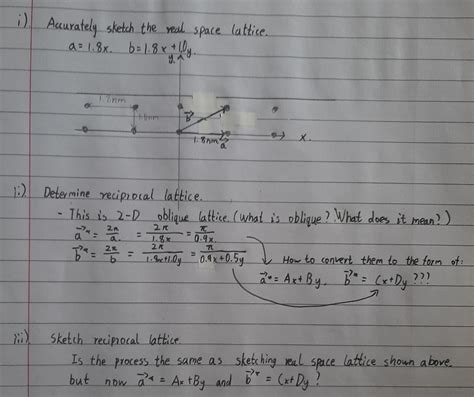 i) Accurately sketch the real space lattice.
a = 1.8x. b = 1.8x + 1.0y.
y
1.8nm
1.0nm
b
1.8nm a
x.
ii) Determine reciprocal lattice.
- This is 2-D oblique lattice. (What is oblique? What does it mean?)
a* = 2π/a = 2π/1.8x = π/0.9x.
b* = 2π/b = 2π/1.8x+1.0y = π/0.9x+0.5y
How to convert them to the form of:
a* = Ax + By, b* = Cx + Dy ???
iii) Sketch reciprocal lattice.
Is the process the same as sketching real space lattice shown above.
but now a* = Ax + By and b* = Cx + Dy ?